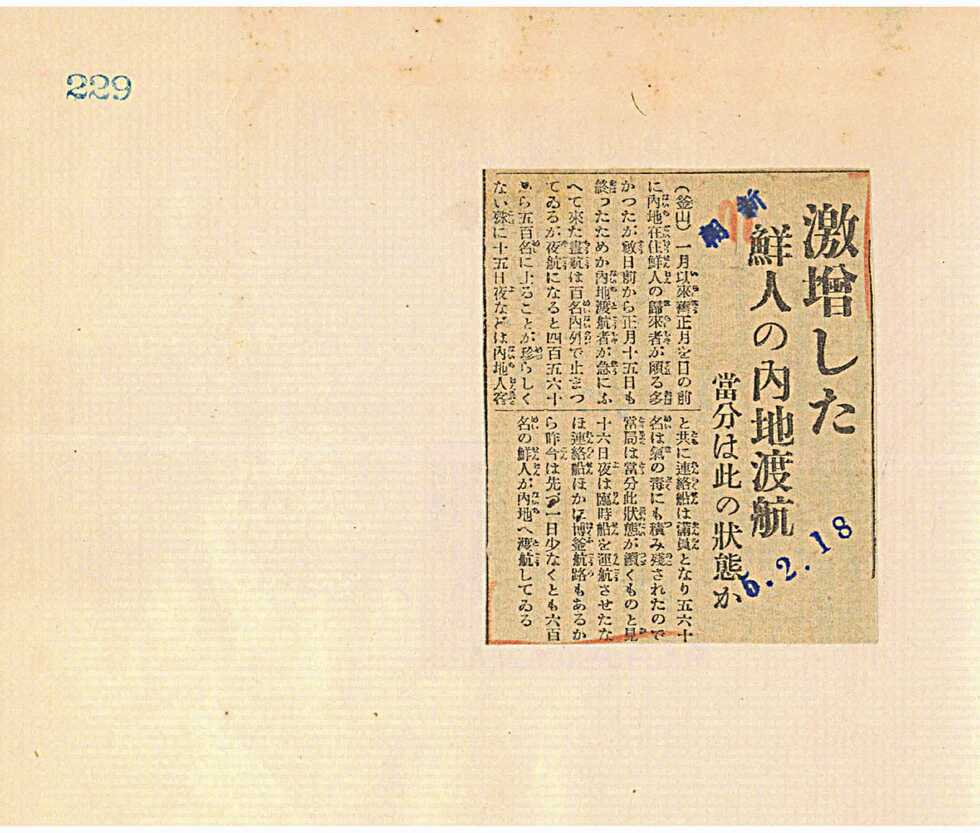 229
激增した
鮮人の內地渡航
當分は此の狀態か
5.2.18
(釜山)一月以來舊正月を目の前
に內地在住鮮人の歸來者が頗る多
かつたが數日前から正月十五日も
終つたためか內地渡航者が急にふ
へて來た晝航は百名內外で止まつ
てゐるが夜航になると四百五六十
から五百名に上ることが珍らしく
ない殊に十五日夜などは內地人客
と共に連絡船は滿員となり五六十
名は氣の毒にも積み殘されたので
當局は當分此狀態が續くものと見
十六日夜は臨時船を運航させたな
ほ連絡船ほかに博釜航路もあるか
ら昨今は先づ一日少なくとも六百
名の鮮人が內地へ渡航してゐる